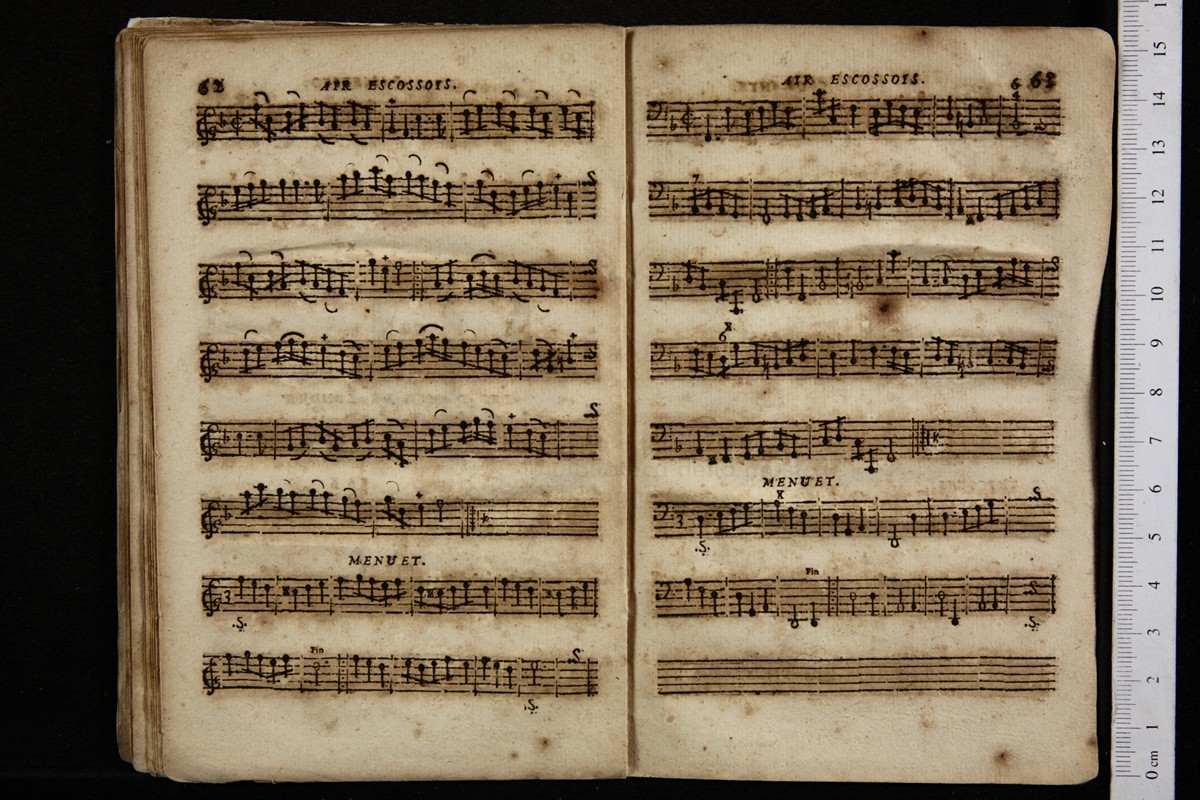 62 AIR ESCOSSOIS.
MENUET.
3
Fin
AIR ESCOSSOIS. 63
6
4
7
6
MENUET.
3
Fin
15
14
13
12
11
10
9
8
7
6
5
4
3
2
1
0 cm